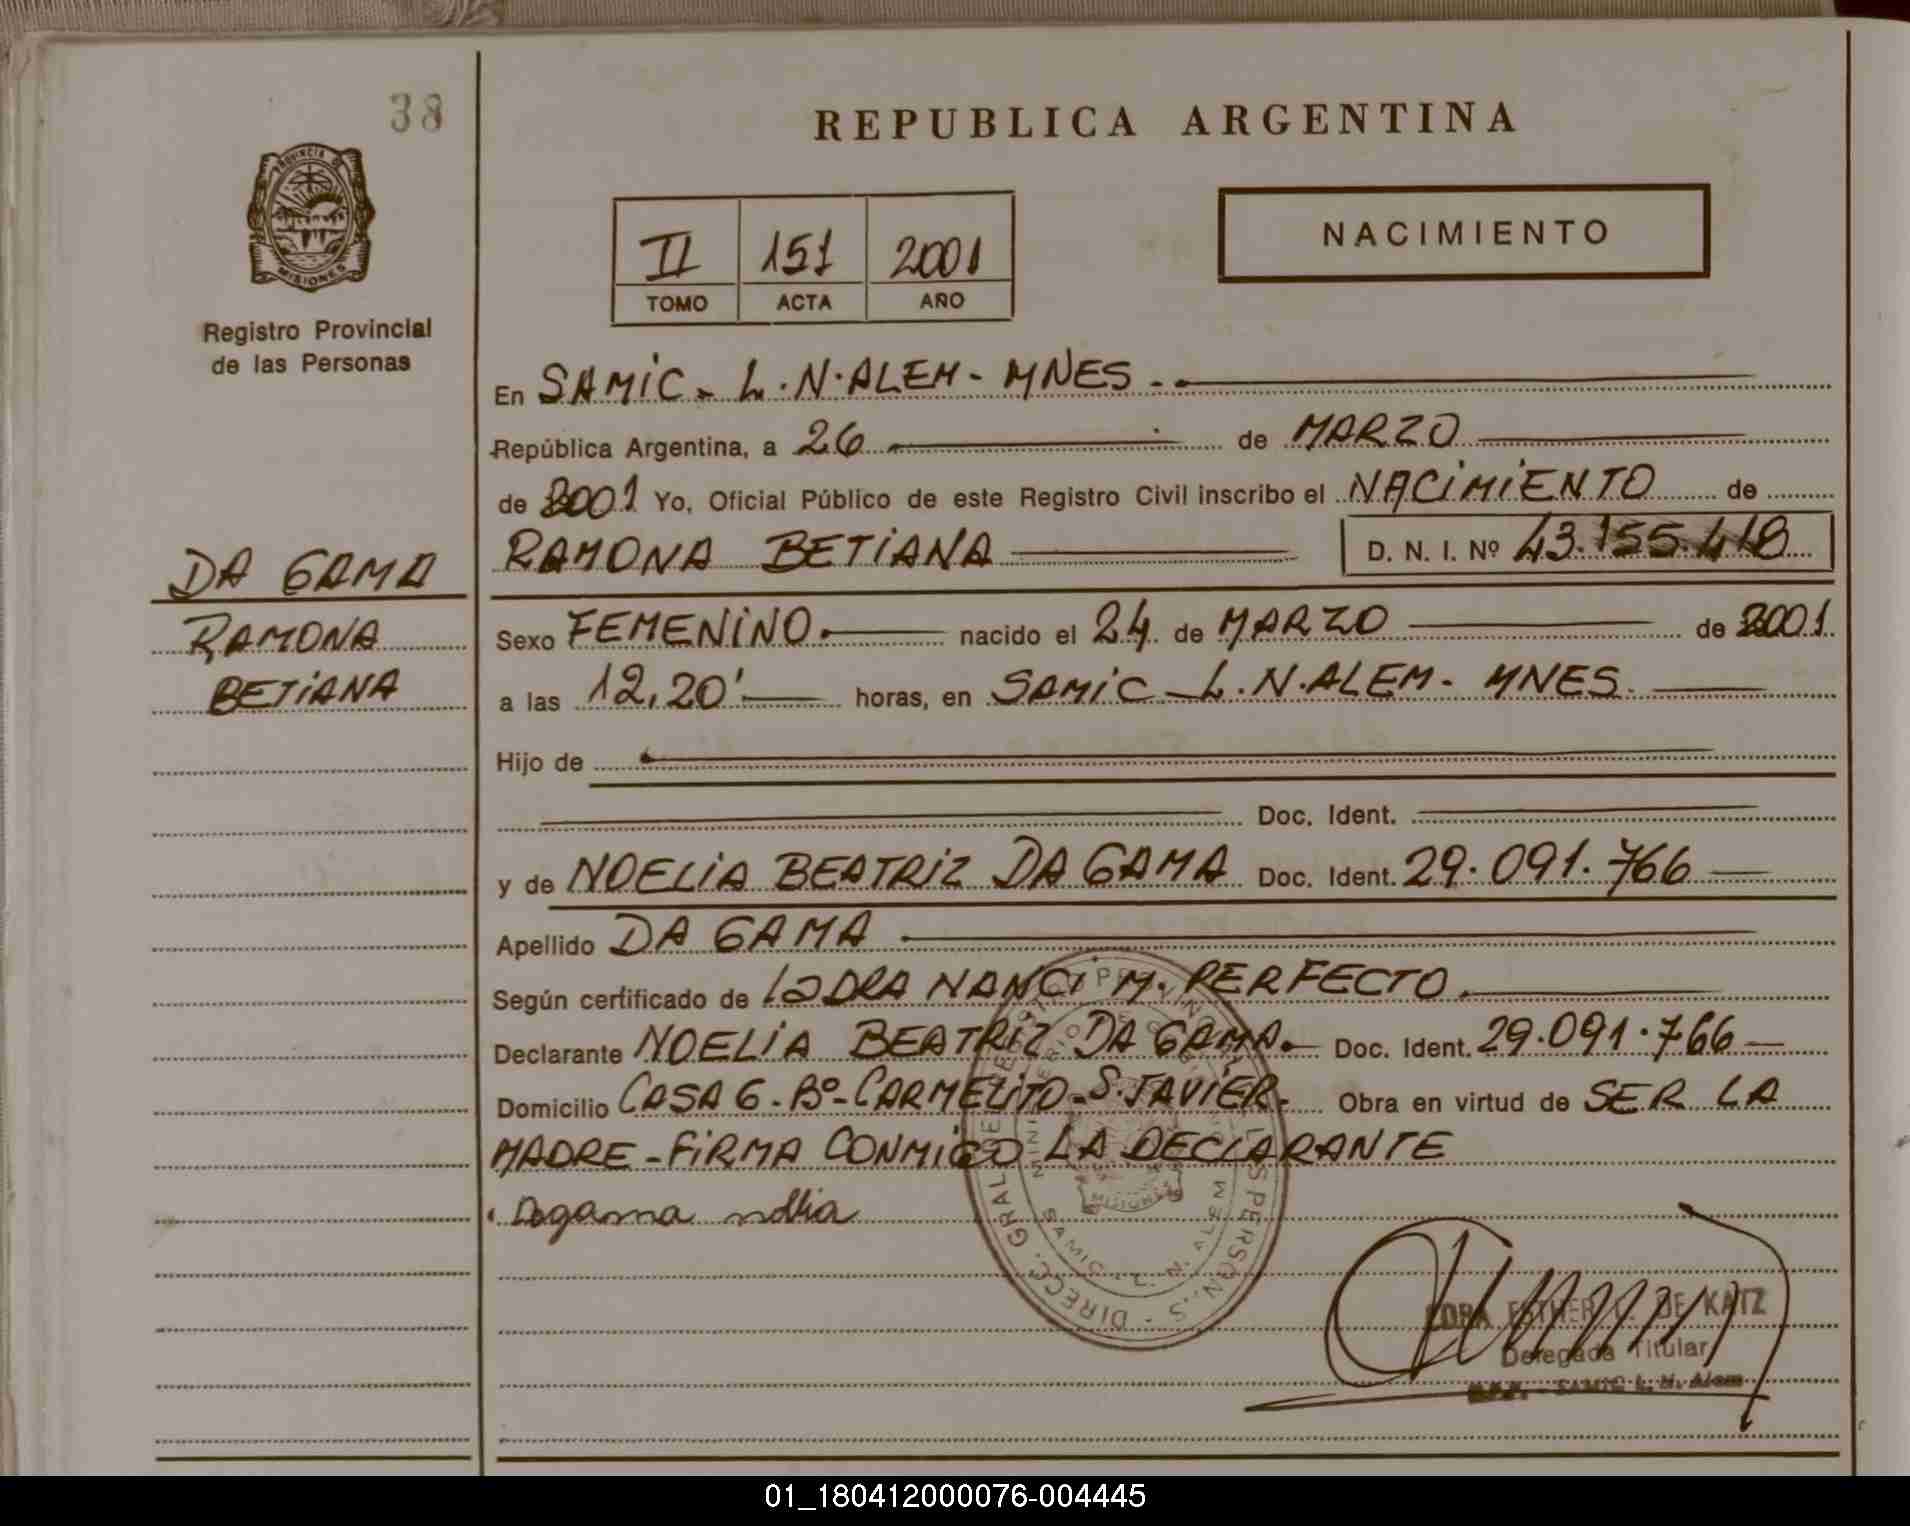 38
REPUBLICA ARGENTINA
PROVINCIA DE
MISIONES
Registro Provincial
de las Personas
II 151 2001
TOMO ACTA AÑO
NACIMIENTO
En SAMIC - L.N.ALEM - MNES.-
República Argentina, a 26 de MARZO
de 2001 Yo, Oficial Público de este Registro Civil inscribo el NACIMIENTO de
RAMONA BETIANA D. N. I. Nº 43.155.418
DA GAMA
RAMONA
BETIANA
Sexo FEMENINO. nacido el 24 de MARZO de 2001.
a las 12,20' horas, en SAMIC - L.N.ALEM - MNES.
Hijo de
Doc. Ident.
y de NOELIA BEATRIZ DA GAMA Doc. Ident. 29.091.766
Apellido DA GAMA
Según certificado de LA DRA NANCI M. PERFECTO.
Declarante NOELIA BEATRIZ DA GAMA. Doc. Ident. 29.091.766
Domicilio CASA 6 - Bº - CARMELITO - S. JAVIER. Obra en virtud de SER LA
MADRE - FIRMA CONMIGO LA DECLARANTE
Dagama nolia
MISIONES
SAMIC - L. N. ALEM
ESTHER C. DE KATZ
Delegada Titular
SAMIC L. N. Alem
01_180412000076-004445